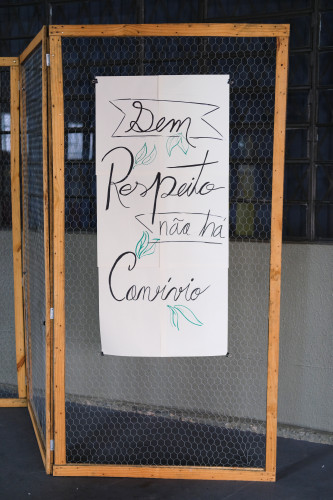 Sem
Respeito
não há
Convívio